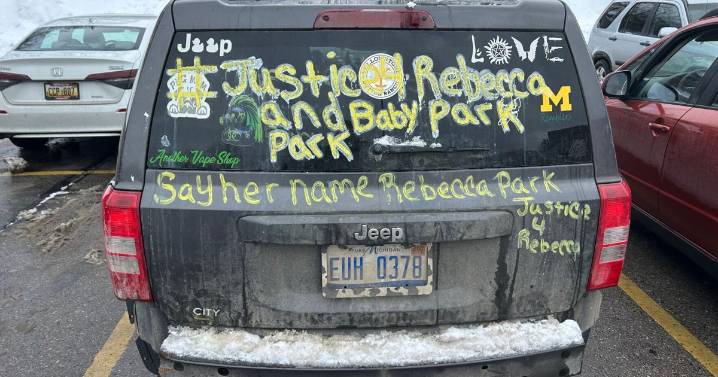 Jeep
LOVE
#Justice 4 Rebecca
and Baby Park
Park
M
Another Vape Shop
Say her name Rebecca Park
Justice
4
Rebecca
Jeep
EUH 0378
CITY